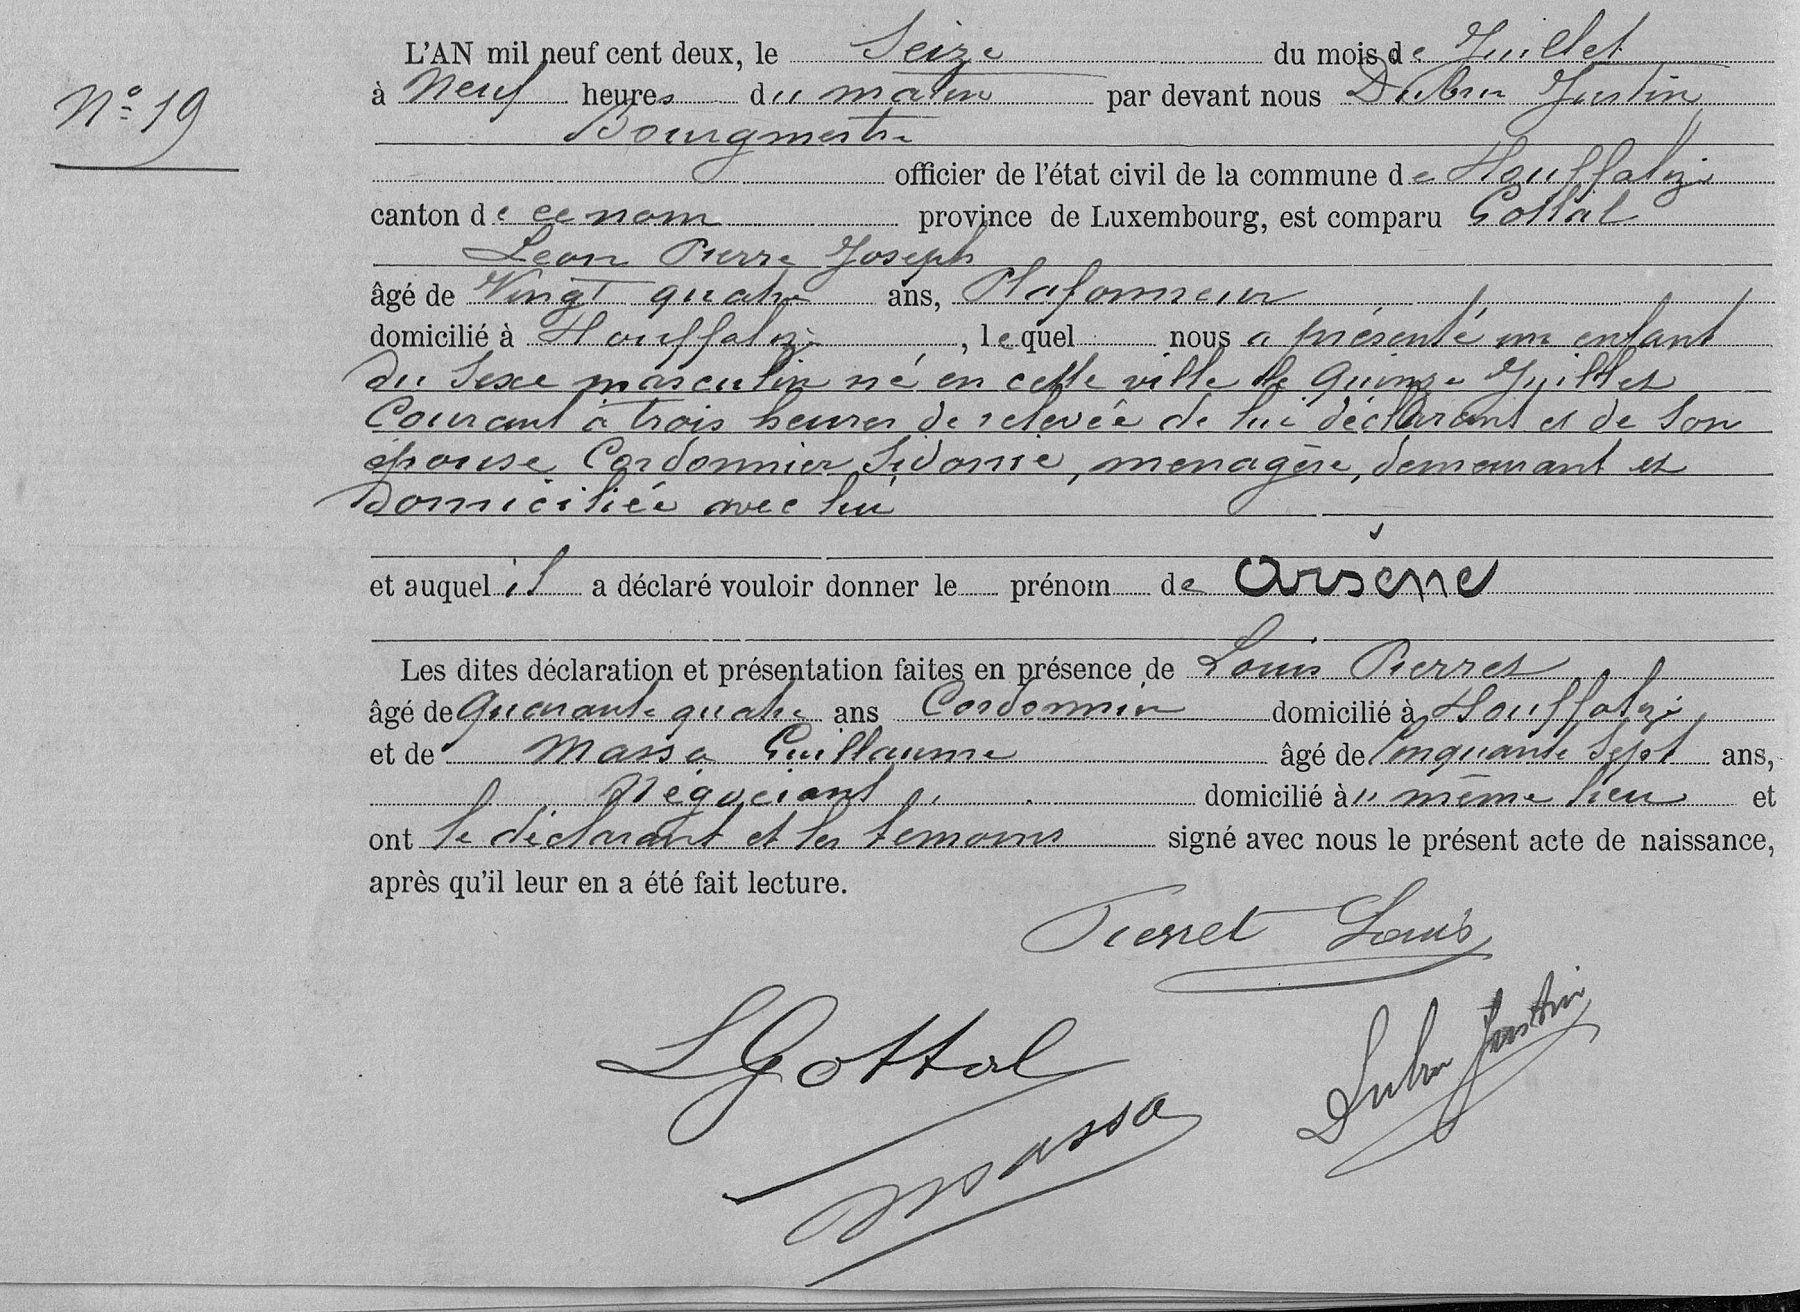 L'AN mil neuf cent deux, le Seize du mois de Juillet
N° 19
à Neuf heures du matin par devant nous Dubru Justin
Bourgmestre
officier de l'état civil de la commune de Houffalize
canton de ce nom province de Luxembourg, est comparu Gottal
Leon Pierre Joseph
âgé de Vingt quatre ans, Plafonneur
domicilié à Houffalize, lequel nous a présenté un enfant
du sexe masculin né en cette ville le quinze Juillet
Courant à trois heures de relevée de lui déclarant et de son
épouse Cordonnier Sidonie, menagère, demeurant et
domiciliée avec lui
et auquel il a déclaré vouloir donner le prénom de Arsène
Les dites déclaration et présentation faites en présence de Louis Pierret
âgé de Quarante quatre ans Cordonnier domicilié à Houffalize
et de Massa Guillaume âgé de Cinquante sept ans,
Négociant domicilié à même lieu et
ont le déclarant et les temoins signé avec nous le présent acte de naissance,
après qu'il leur en a été fait lecture.
Pierret Louis
LGottal
Dubru Justin
Massa